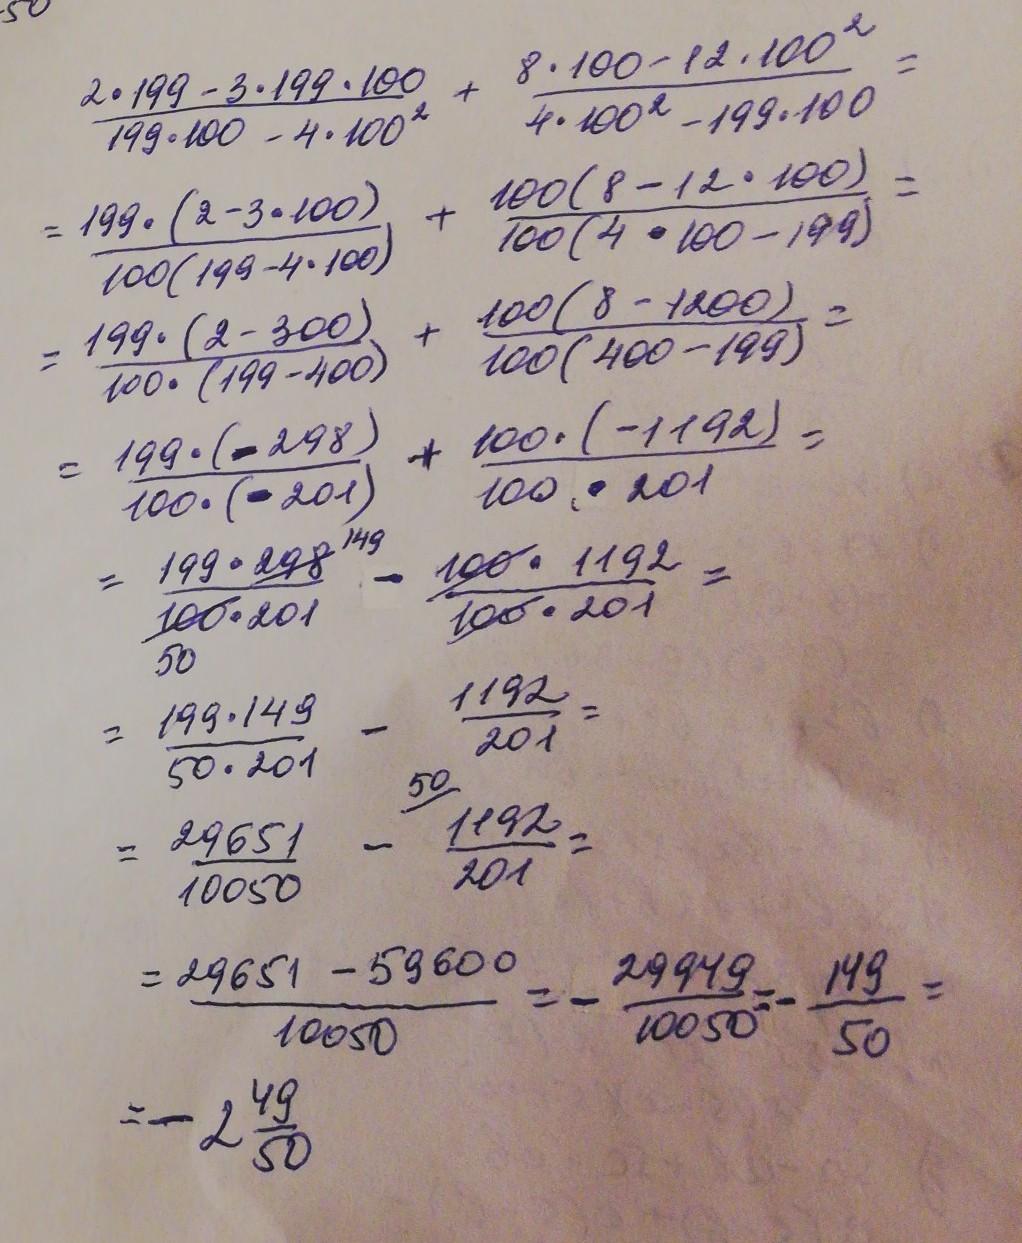 50
(2·199 − 3·199·100)/(199·100 − 4·100²) + (8·100 − 12·100²)/(4·100² − 199·100) =
= (199·(2 − 3·100))/(100(199 − 4·100)) + (100(8 − 12·100))/(100(4·100 − 199)) =
= (199·(2 − 300))/(100·(199 − 400)) + (100(8 − 1200))/(100(400 − 199)) =
= (199·(−298))/(100·(−201)) + (100·(−1192))/(100·201) =
= (199·298 149)/(100·201 50) − (100·1192)/(100·201) =
= (199·149)/(50·201) − 1192/201 =
= 29651/10050 − 50/ 1192/201 =
= (29651 − 59600)/10050 = − 29949/10050 = − 149/50 =
= − 2 49/50